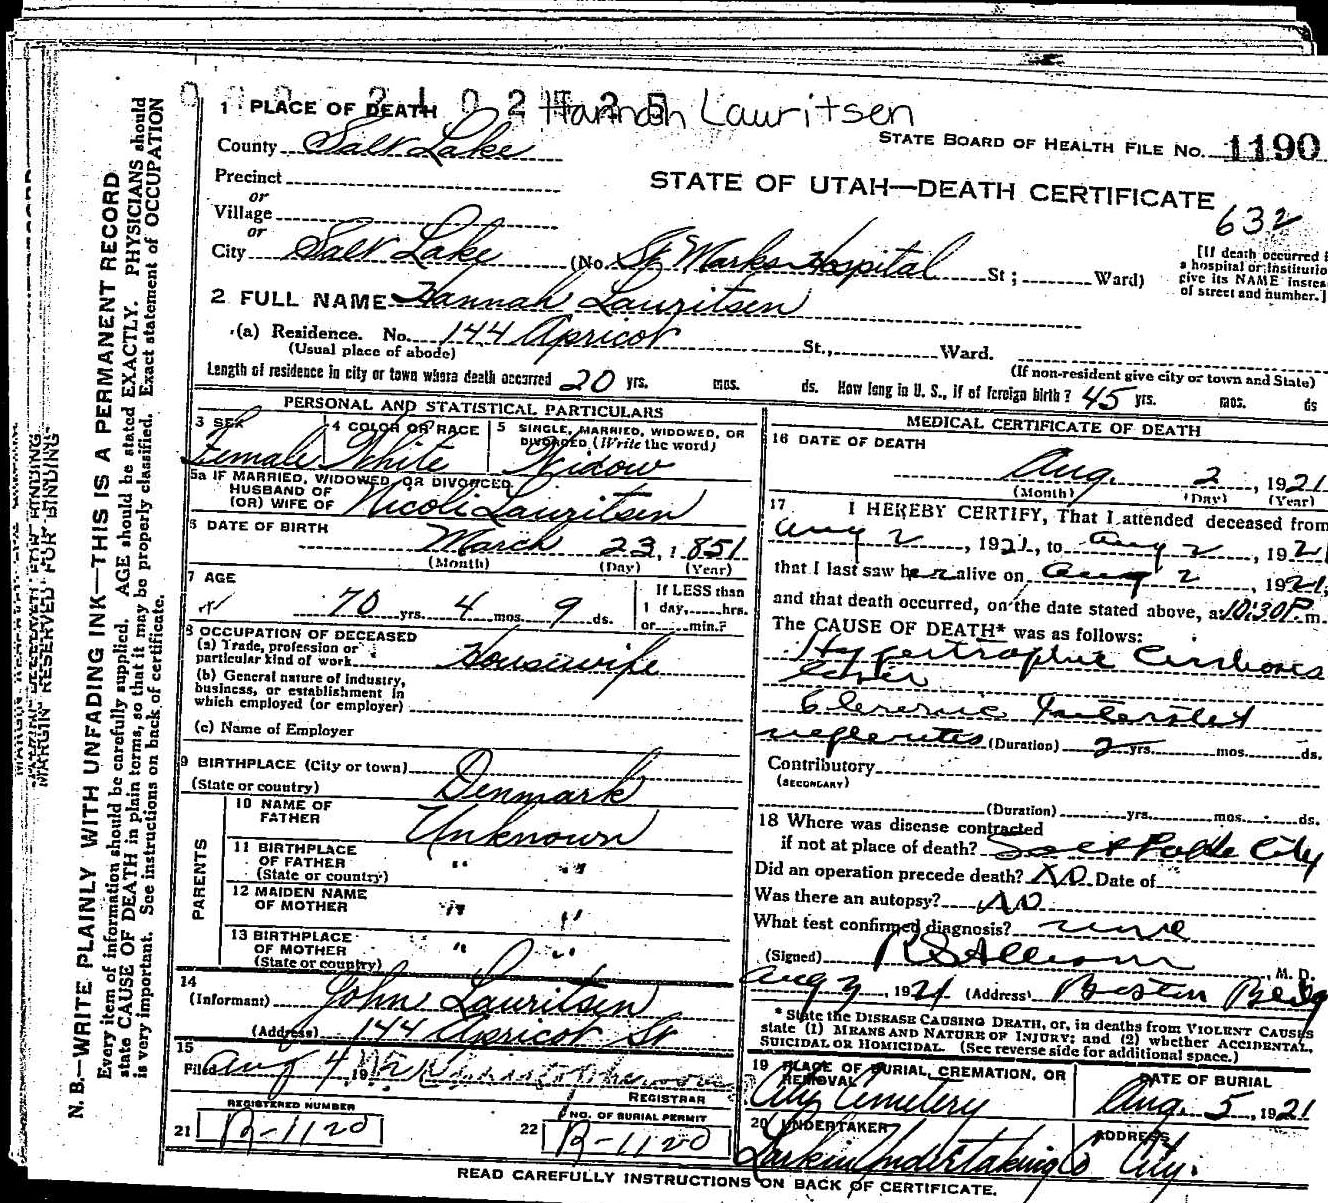 Hannah Lauritsen
1 PLACE OF DEATH
STATE BOARD OF HEALTH FILE NO. 1190
County Salt Lake
Precinct
STATE OF UTAH—DEATH CERTIFICATE
or
Village
632
or
City Salt Lake (No. St Marks Hospital St; Ward)
[If death occurred
a hospital or institutio
give its NAME instea
of street and number.]
2 FULL NAME Hannah Lauritsen
(a) Residence. No. 144 Apricot St., Ward.
(Usual place of abode)
(If non-resident give city or town and State)
Length of residence in city or town where death occurred 20 yrs. mos. ds. How long in U. S., if of foreign birth? 45 yrs. mos. ds
PERSONAL AND STATISTICAL PARTICULARS
3 SEX Female
4 COLOR OR RACE White
5 SINGLE, MARRIED, WIDOWED, OR
DIVORCED (Write the word)
Widow
5a IF MARRIED, WIDOWED, OR DIVORCED
HUSBAND OF
(OR) WIFE OF Nicoli Lauritsen
6 DATE OF BIRTH
March 23, 1851
(Month) (Day) (Year)
7 AGE
70 yrs. 4 mos. 9 ds.
If LESS than
1 day, hrs.
or min.?
8 OCCUPATION OF DECEASED
(a) Trade, profession or
particular kind of work Housewife
(b) General nature of industry,
business, or establishment in
which employed (or employer)
(c) Name of Employer
9 BIRTHPLACE (City or town)
(State or country) Denmark
PARENTS
10 NAME OF
FATHER Unknown
11 BIRTHPLACE
OF FATHER " "
(State or country)
12 MAIDEN NAME
OF MOTHER " "
13 BIRTHPLACE
OF MOTHER " "
(State or country)
14
(Informant) John Lauritsen
(Address) 144 Apricot St
15
Filed Aug 4, 19
REGISTRAR
REGISTERED NUMBER
21 B-1120
NO. OF BURIAL PERMIT
22 B-1120
MEDICAL CERTIFICATE OF DEATH
16 DATE OF DEATH
Aug. 2, 1921
(Month) (Day) (Year)
17 I HEREBY CERTIFY, That I attended deceased from
Aug 2, 1921, to Aug 2, 1921
that I last saw her alive on Aug 2, 1921,
and that death occurred, on the date stated above, at 10:30 P. m.
The CAUSE OF DEATH* was as follows:
Hypertrophic Cirrhosis
(Duration) 2 yrs. mos. ds.
Contributory
(SECONDARY)
(Duration) yrs. mos. ds.
18 Where was disease contracted
if not at place of death? Salt Lake City
Did an operation precede death? No Date of
Was there an autopsy? No
What test confirmed diagnosis?
(Signed) R S Allison, M. D.
Aug 3, 1921 (Address) Boston Bldg
* State the DISEASE CAUSING DEATH, or, in deaths from VIOLENT CAUSES
state (1) MEANS AND NATURE OF INJURY; and (2) whether ACCIDENTAL,
SUICIDAL OR HOMICIDAL. (See reverse side for additional space.)
19 PLACE OF BURIAL, CREMATION, OR
REMOVAL
City Cemetery
DATE OF BURIAL
Aug. 5, 1921
20 UNDERTAKER
Larkin Undertaking Co
ADDRESS
City.
READ CAREFULLY INSTRUCTIONS ON BACK OF CERTIFICATE.
MARGIN RESERVED FOR BINDING
N. B.—WRITE PLAINLY WITH UNFADING INK—THIS IS A PERMANENT RECORD
Every item of information should be carefully supplied. AGE should be stated EXACTLY. PHYSICIANS should
state CAUSE OF DEATH in plain terms, so that it may be properly classified. Exact statement of OCCUPATION
is very important. See instructions on back of certificate.